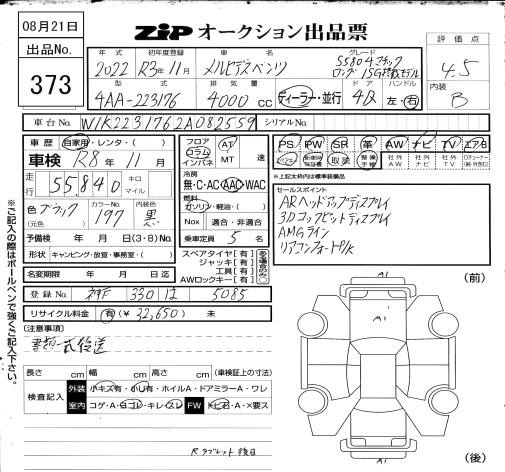 08月21日
ZIP オークション出品票
出品No.
373
年式 初年度登録 車名 グレード
2022 R3年11月 メルセデスベンツ S580 4マチック
ロング ISG搭載モデル
型式 排気量 ドア ハンドル
4AA-223176 4000cc ディーラー・並行 4D 左・右
評価点
4.5
内装
B
車台No. W1K2231762A082559 シリアルNo.
車歴 自家用・レンタ・( )
車検 R8年11月
走行 55,840 キロ マイル
色 ブラック (元色) カラーNo. 197 内装色 黒
予備検 年 月 日(3・8)No.
形状 キャンピング・放宣・事務室・( )
名変期限 年 月 日迄
フロア コラム インパネ AT MT 速
冷房 無・C・AC・AAC・WAC
燃料 ガソリン・軽油・( )
Nox 適合・非適合
乗車定員 5名
スペアタイヤ[有]
ジャッキ[有]
工具[有]
AWロックキー[有]
PS PW SR 革 AW ナビ TV エアB
取説 社外AW 社外ナビ 社外TV
※上記太わく内は標準装備品
セールスポイント
ARヘッドアップディスプレイ
3Dコックピットディスプレイ
AMGライン
リアコンフォートP/K
登録No. 神戸 330 は 5085
リサイクル料金 有(¥ 32,650) 未
(注意事項)
書類一式後送
長さ cm 幅 cm 高さ cm (車検証上の寸法)
検査記入 外装 小キズ有・小凹有・ホイルA・ドアミラーA・ワレ
室内 コゲ・A・白コレ・キレ・スレ FW トビ石・A・X要ス
Rタブレット後日
※ご記入の際はボールペンで強くご記入下さい。
(前)
A1
A1
A1
(後)